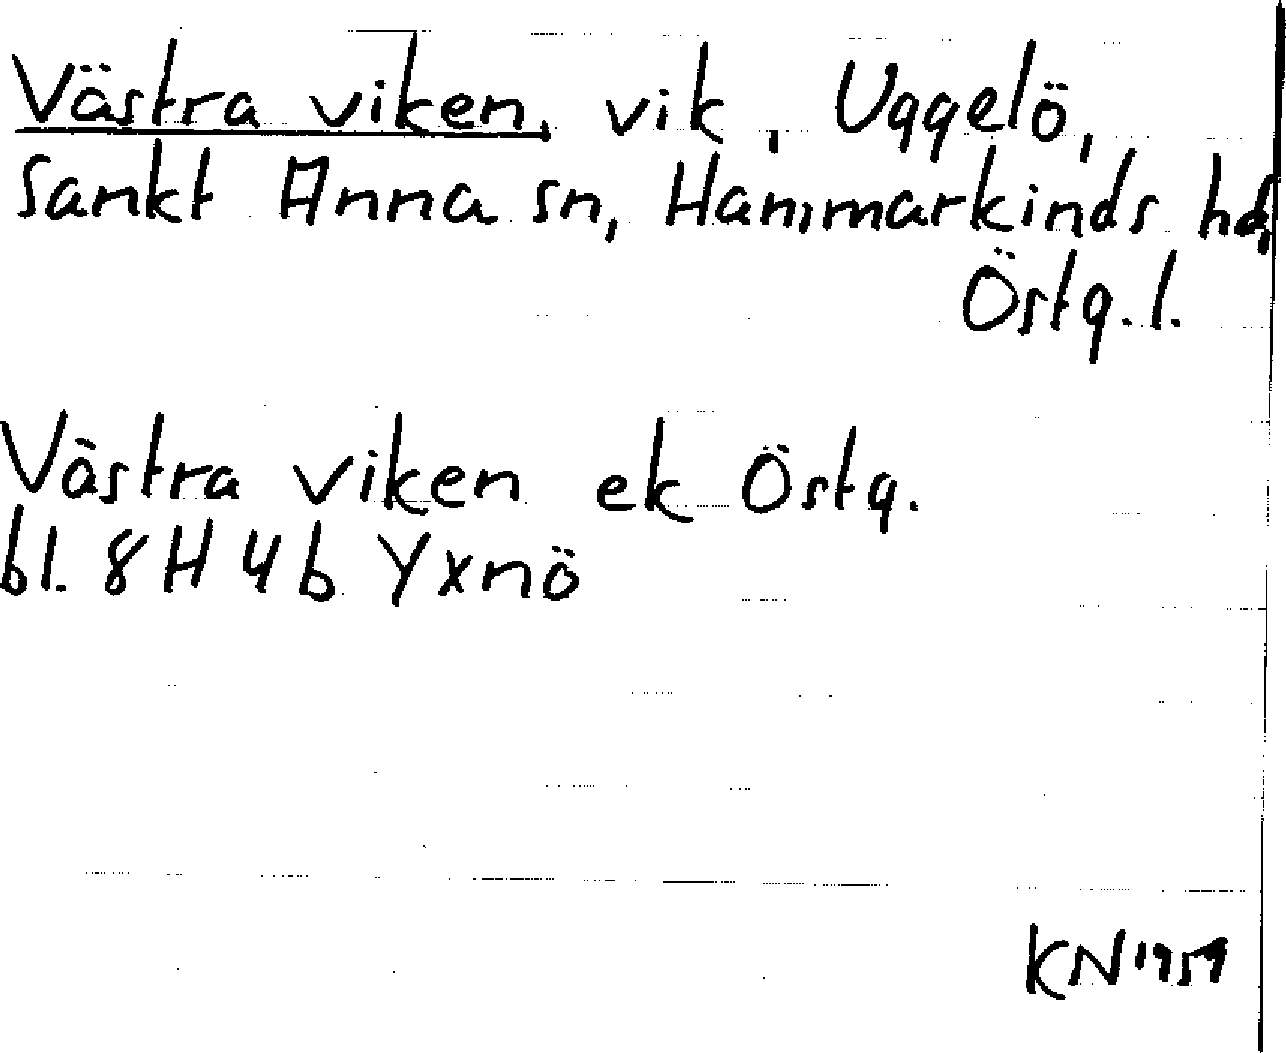 Västra viken, vik, Uggelö,
Sankt Anna sn, Hammarkinds hd,
Östg.l.
Västra viken ek Östg.
bl. 8H4b Yxnö
KN